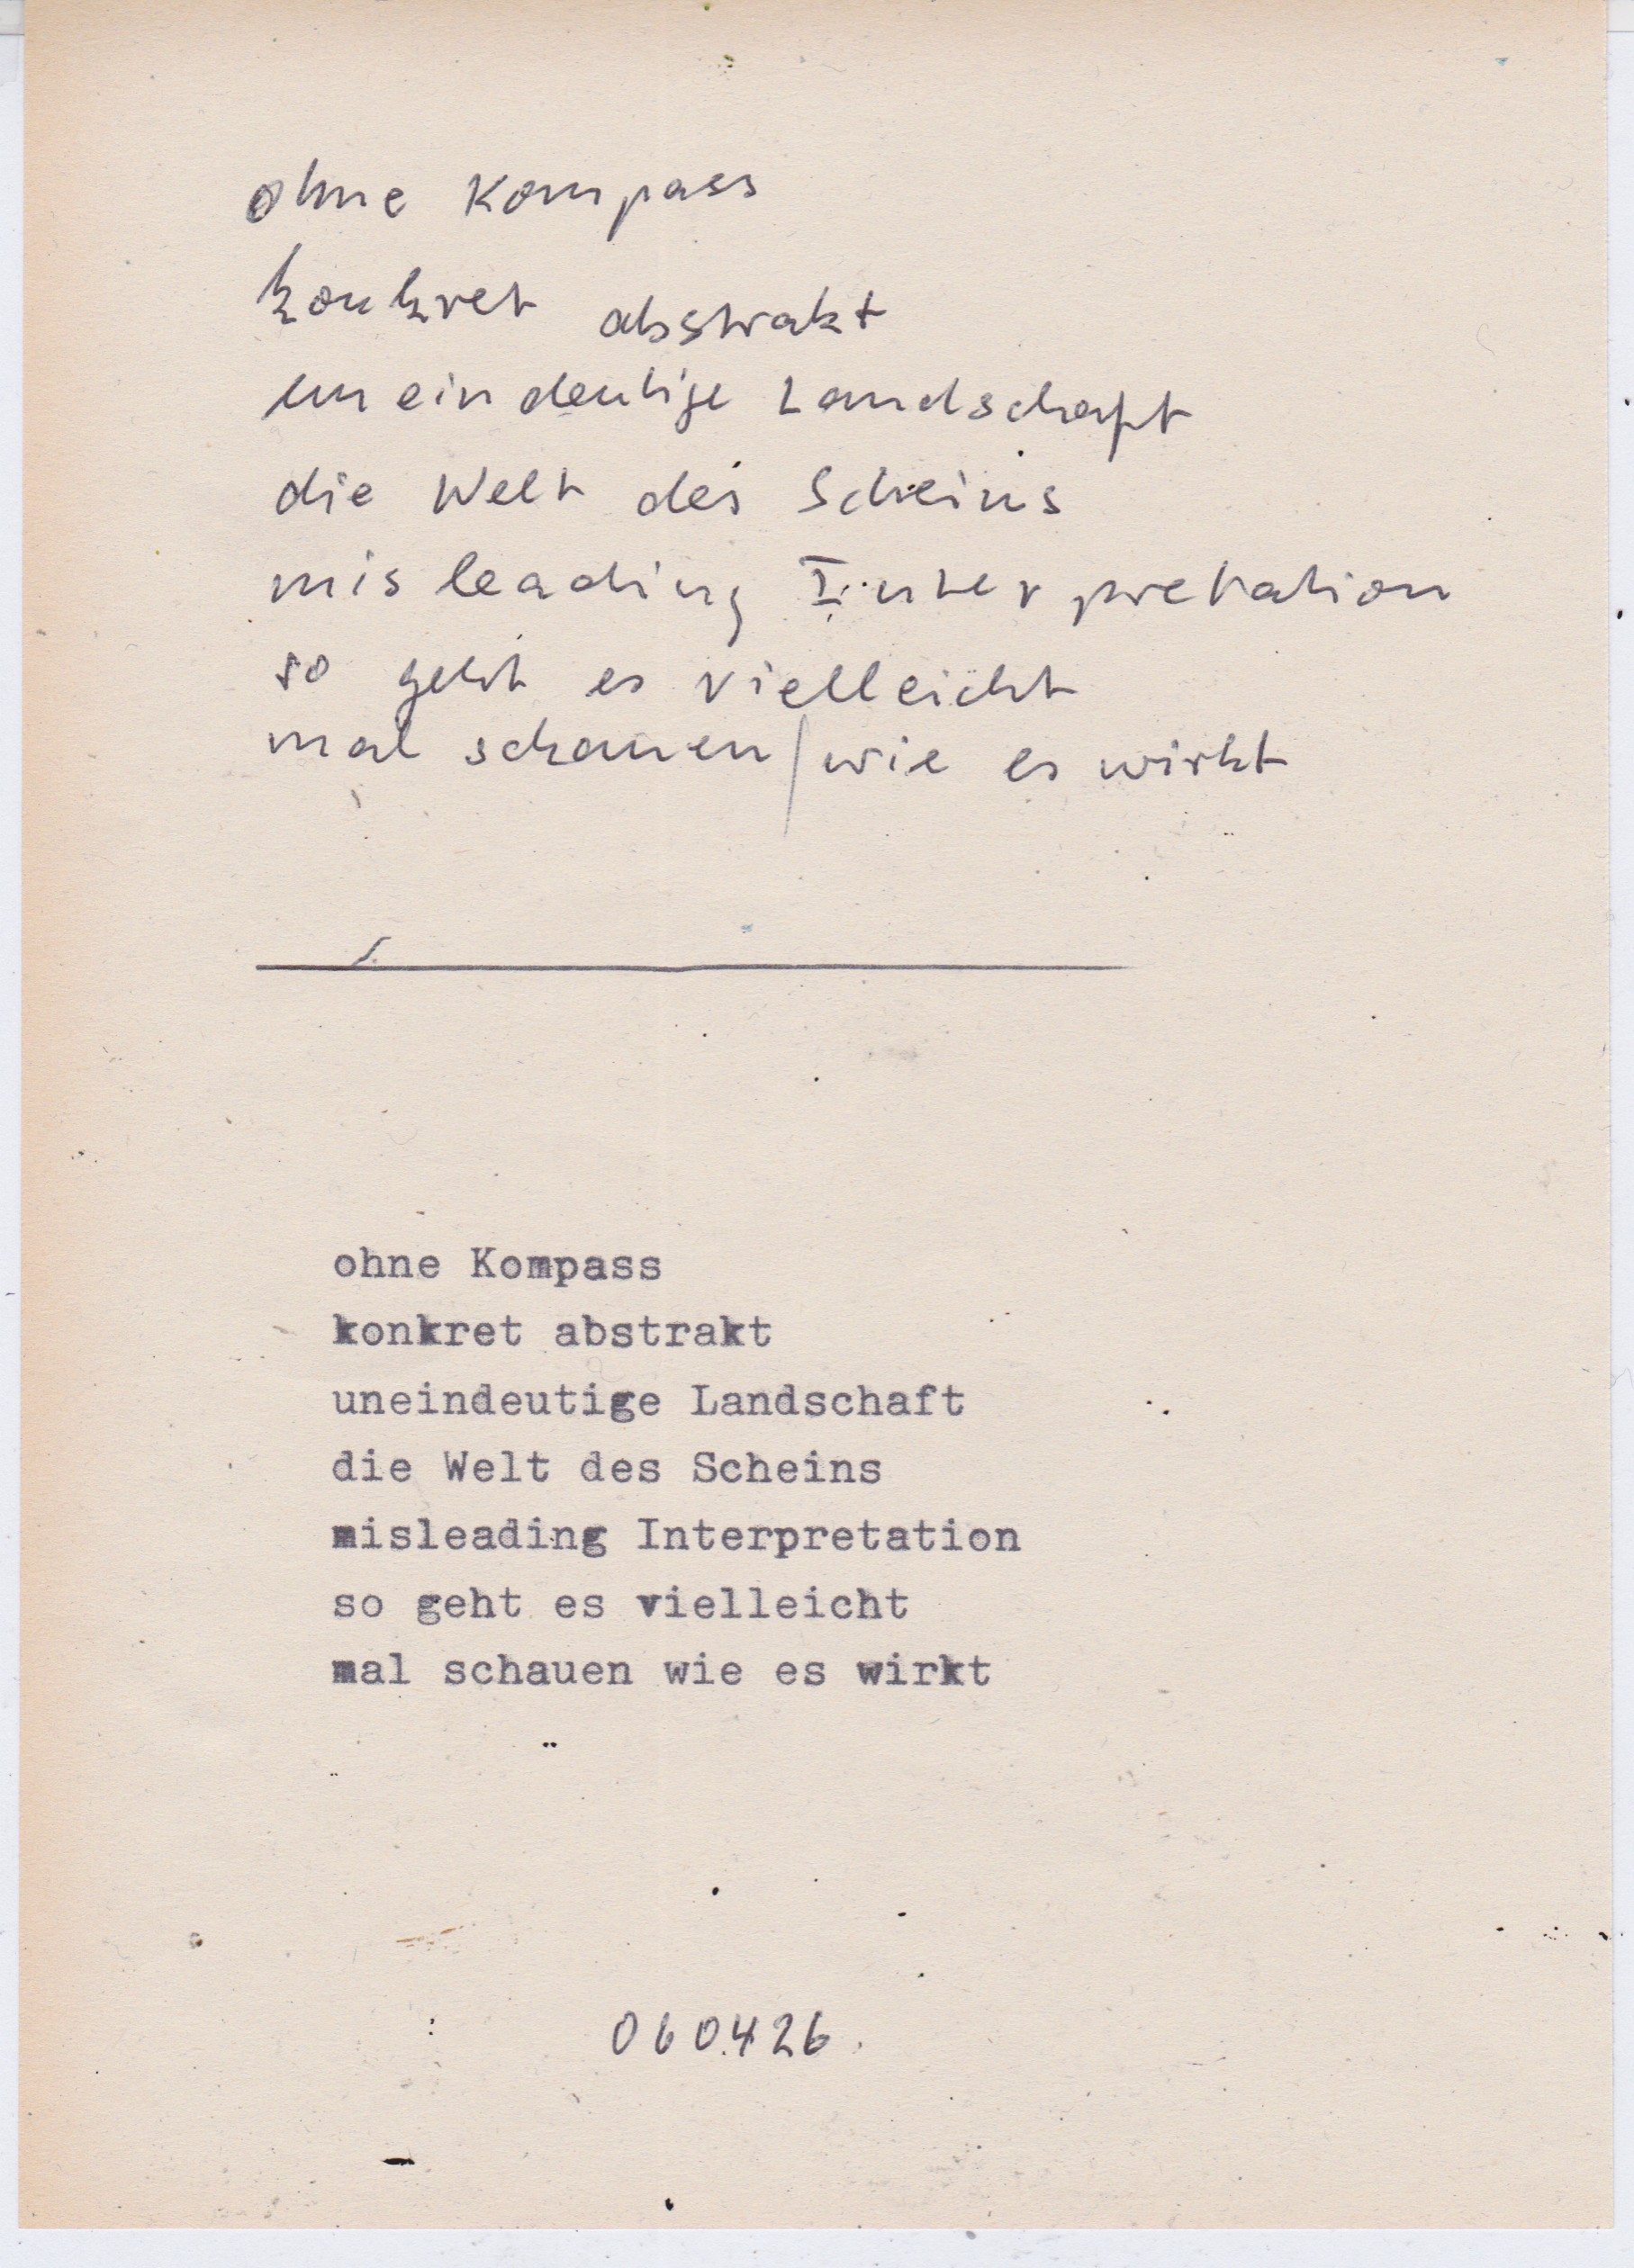 ohne Kompass
konkret abstrakt
uneindeutige Landschaft
die Welt des Scheins
misleading Interpretation
so geht es vielleicht
mal schauen / wie es wirkt
ohne Kompass
konkret abstrakt
uneindeutige Landschaft
die Welt des Scheins
misleading Interpretation
so geht es vielleicht
mal schauen wie es wirkt
060426